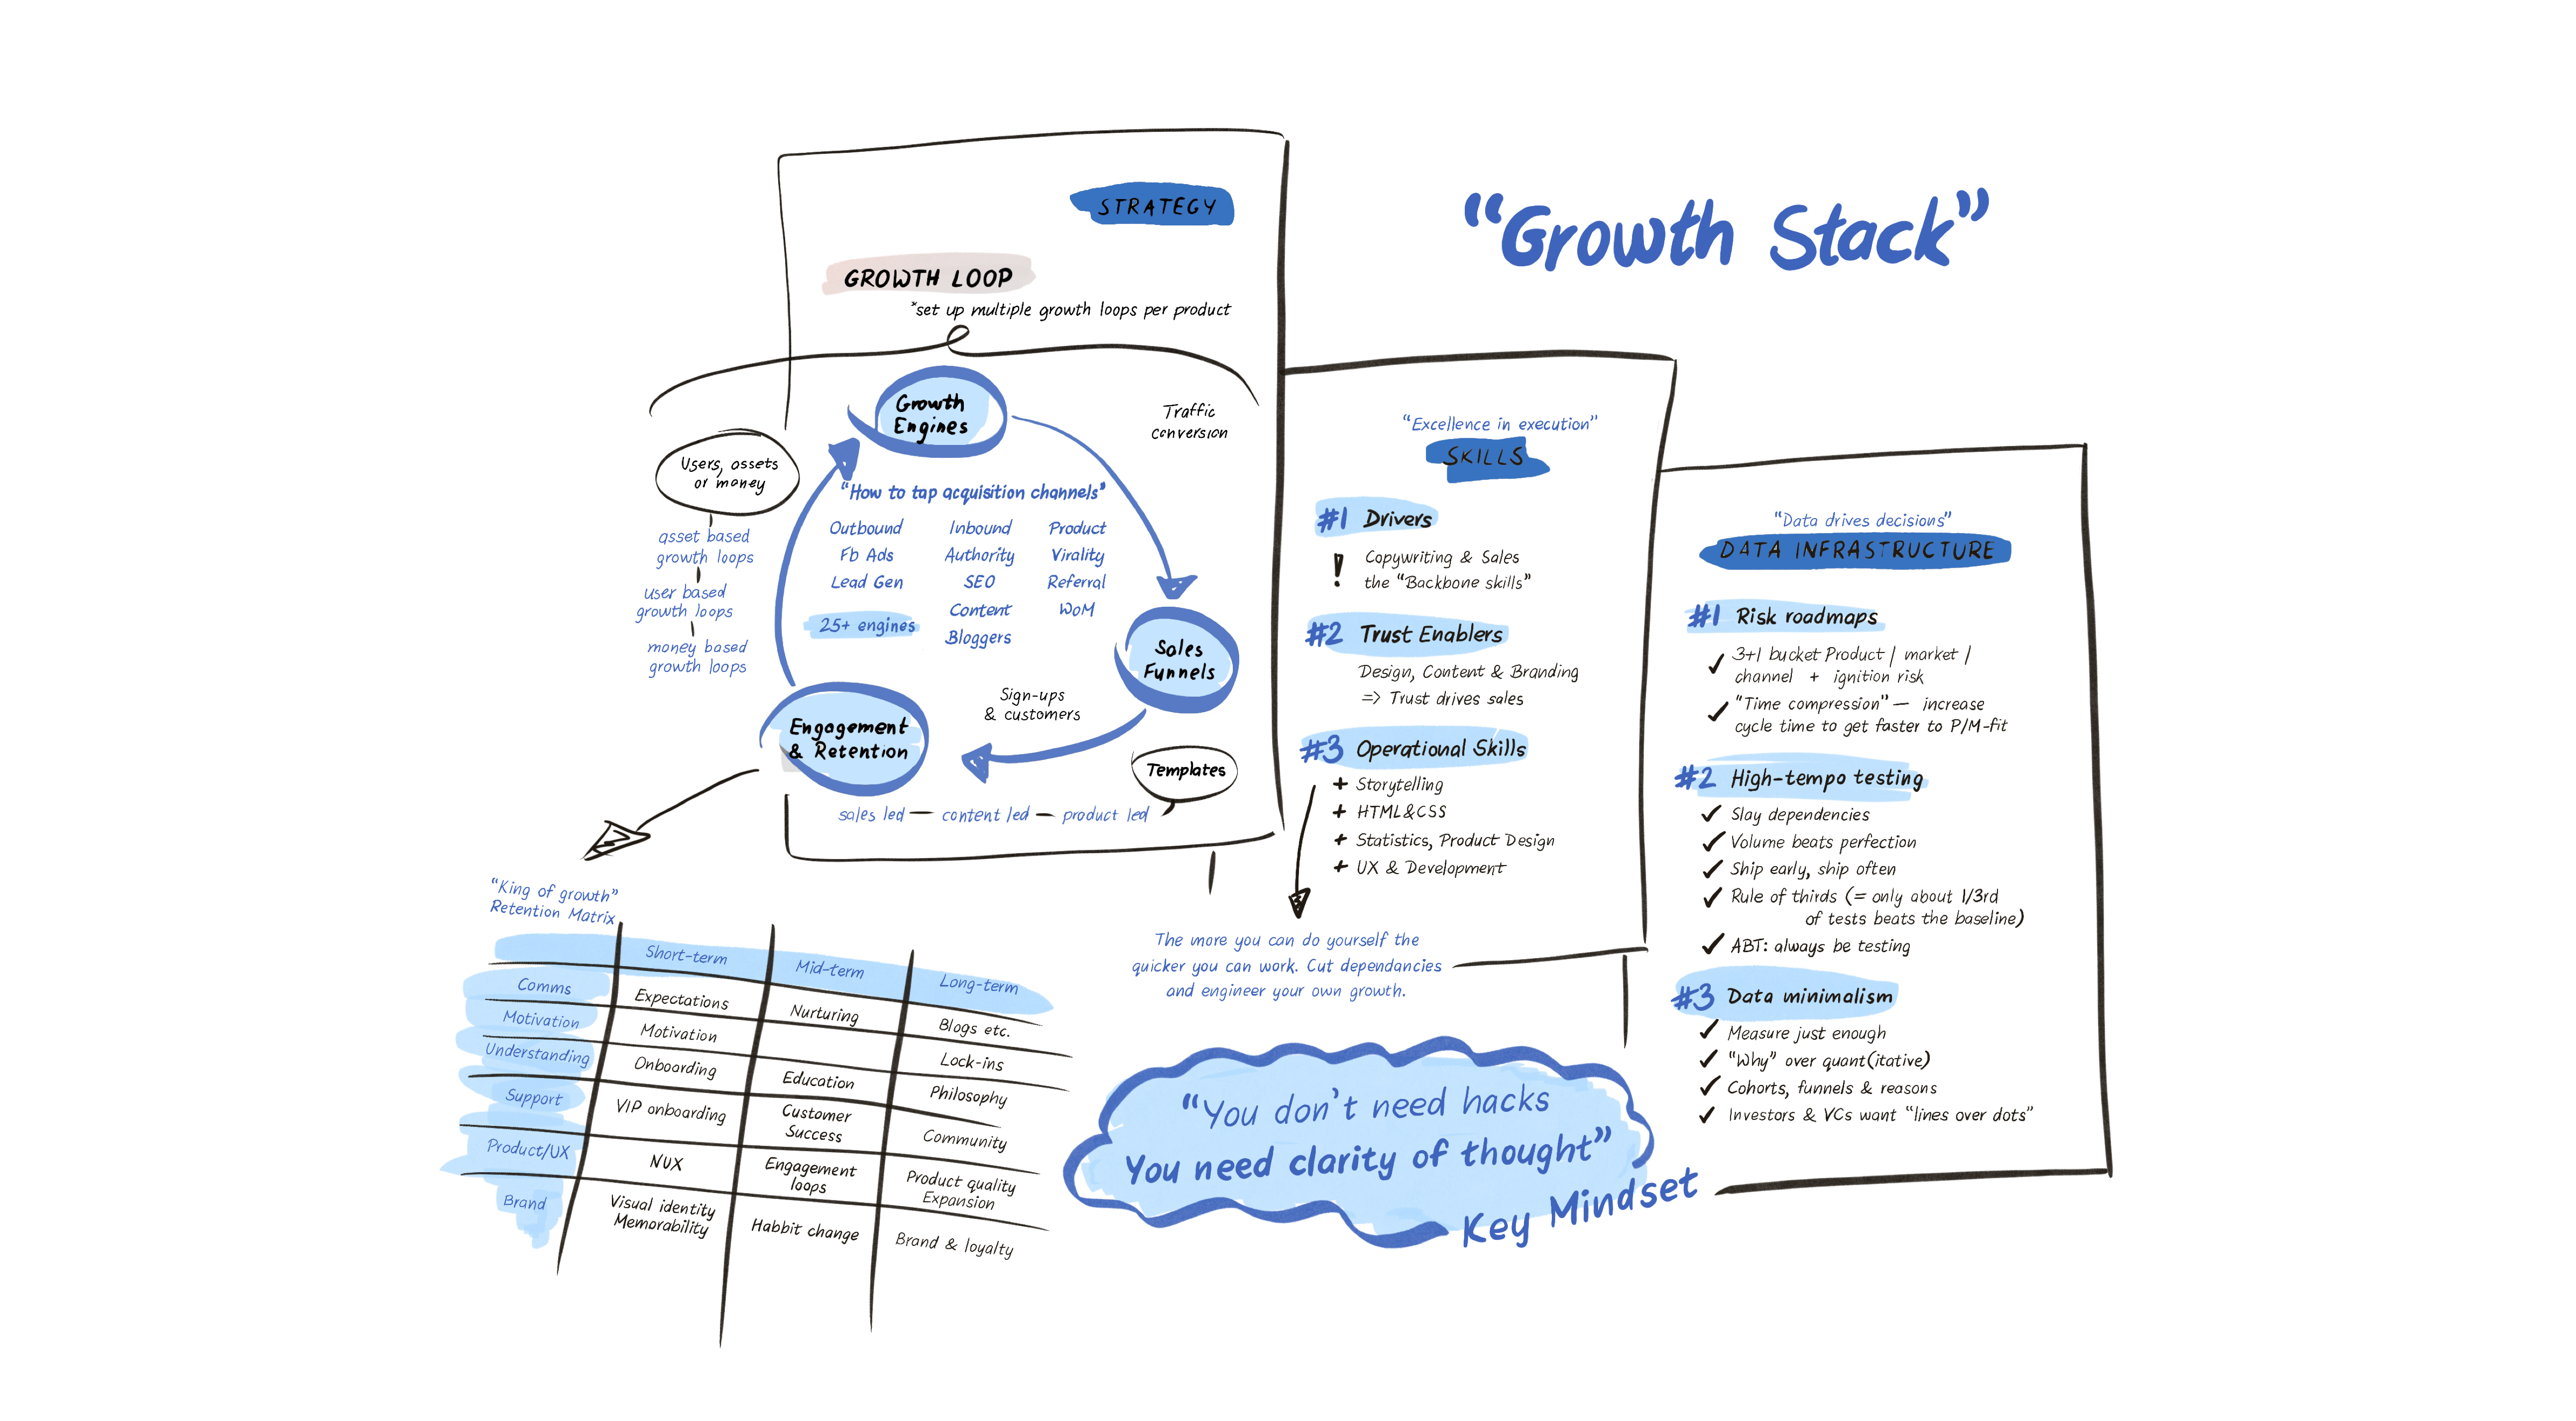 "Growth Stack"
STRATEGY
GROWTH LOOP
*set up multiple growth loops per product
Growth
Engines
Traffic
conversion
Users, assets
or money
asset based
growth loops
user based
growth loops
money based
growth loops
"How to tap acquisition channels"
Outbound
Fb Ads
Lead Gen
25+ engines
Inbound
Authority
SEO
Content
Bloggers
Product
Virality
Referral
WoM
Sales
Funnels
Sign-ups
& customers
Engagement
& Retention
Templates
sales led — content led — product led
"King of growth"
Retention Matrix
Short-term Mid-term Long-term
Comms Expectations Nurturing Blogs etc.
Motivation Motivation Lock-ins
Understanding Onboarding Education Philosophy
Support VIP onboarding Customer
Success Community
Product/UX NUX Engagement
loops Product quality
Expansion
Brand Visual identity
Memorability Habbit change Brand & loyalty
"Excellence in execution"
SKILLS
#1 Drivers
! Copywriting & Sales
the "Backbone skills"
#2 Trust Enablers
Design, Content & Branding
=> Trust drives sales
#3 Operational Skills
+ Storytelling
+ HTML&CSS
+ Statistics, Product Design
+ UX & Development
The more you can do yourself the
quicker you can work. Cut dependancies
and engineer your own growth.
"Data drives decisions"
DATA INFRASTRUCTURE
#1 Risk roadmaps
✓ 3+1 bucket Product / market /
channel + ignition risk
✓ "Time compression" — increase
cycle time to get faster to P/M-fit
#2 High-tempo testing
✓ Slay dependencies
✓ Volume beats perfection
✓ Ship early, ship often
✓ Rule of thirds (= only about 1/3rd
of tests beats the baseline)
✓ ABT: always be testing
#3 Data minimalism
✓ Measure just enough
✓ "Why" over quant(itative)
✓ Cohorts, funnels & reasons
✓ Investors & VCs want "lines over dots"
"You don't need hacks
You need clarity of thought"
Key Mindset